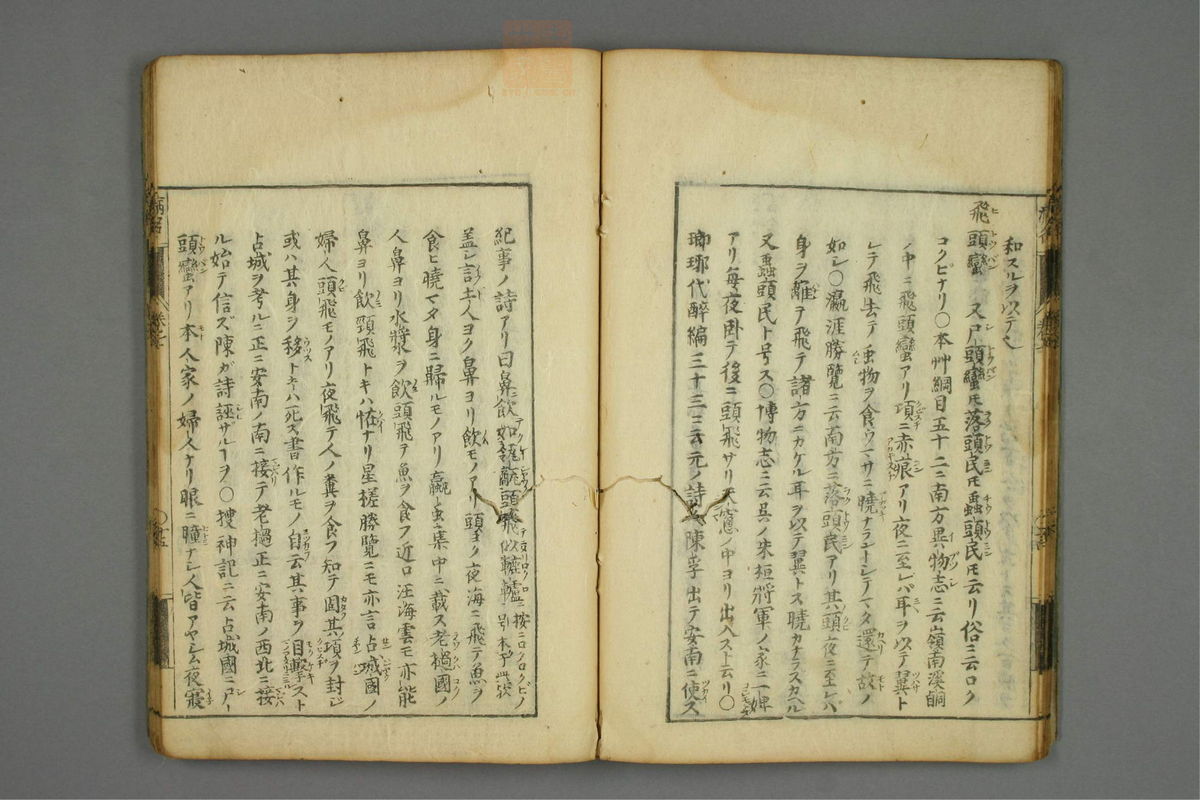 和スルヲ以テ也
飛頭蠻 又尸頭蠻モ落頭民モ蟲頭民モ云リ俗ニ云ロク
コクビナリ〇本艸綱目五十二ニ南方異物志ニ云嶺南溪峒
ノ中ニ飛頭蠻アリ項ニ赤痕アリ夜ニ至レバ耳ヲ以テ翼ト
レテ飛去テ虫物ヲ食ウマサニ曉ナラントシテマタ還テ故ノ
如シ〇瀛涯勝覽ニ云南方ニ落頭民アリ其頭夜ニ至レバ
身ヲ離テ飛テ諸方ニカケル耳ヲ以テ翼トス曉カナラスカヘル
又蟲頭民ト号ス〇博物志ニ云呉ノ朱桓將軍ノ家ニ一婢
アリ毎夜卧テ後ニ頭飛サリ天窓ノ中ヨリ出入スト云リ〇
瑯琊代醉編三十三ニ云元ノ詩人陳孚出テ安南ニ使ス
紀事ノ詩アリ曰鼻飲如瓴甋頭飛似轆轤 按ニロクロクビノ
盖シ言土人ヨク鼻ヨリ飲モノアリ頭ヨク夜海ニ飛テ魚ヲ
食ヒ曉マタ身ニ歸ルモノアリ嬴虫集中ニ載ス老檛國ノ
人鼻ヨリ水漿ヲ飲頭飛テ魚ヲ食フ近ロ汪海雲モ亦能
鼻ヨリ飲頸飛トキハ怪ナリ星槎勝覽ニモ亦言占城國ノ
婦人頭飛モノアリ夜飛テ人ノ糞ヲ食フ知テ固其項ヲ封ジ
或ハ其身ヲ移トキハ死ス書作ルモノ自云其事ヲ目撃スト
占城ヲ考ルニ正ニ安南ノ南ニ接テ老檛正ニ安南ノ西北ニ接
ル始テ信ズ陳ガ詩誣サルヿヲ〇搜神記ニ云占城國ニ尸
頭蠻アリ本人家ノ婦人ケリ眼ニ瞳ナシ人皆アヤシム夜寢